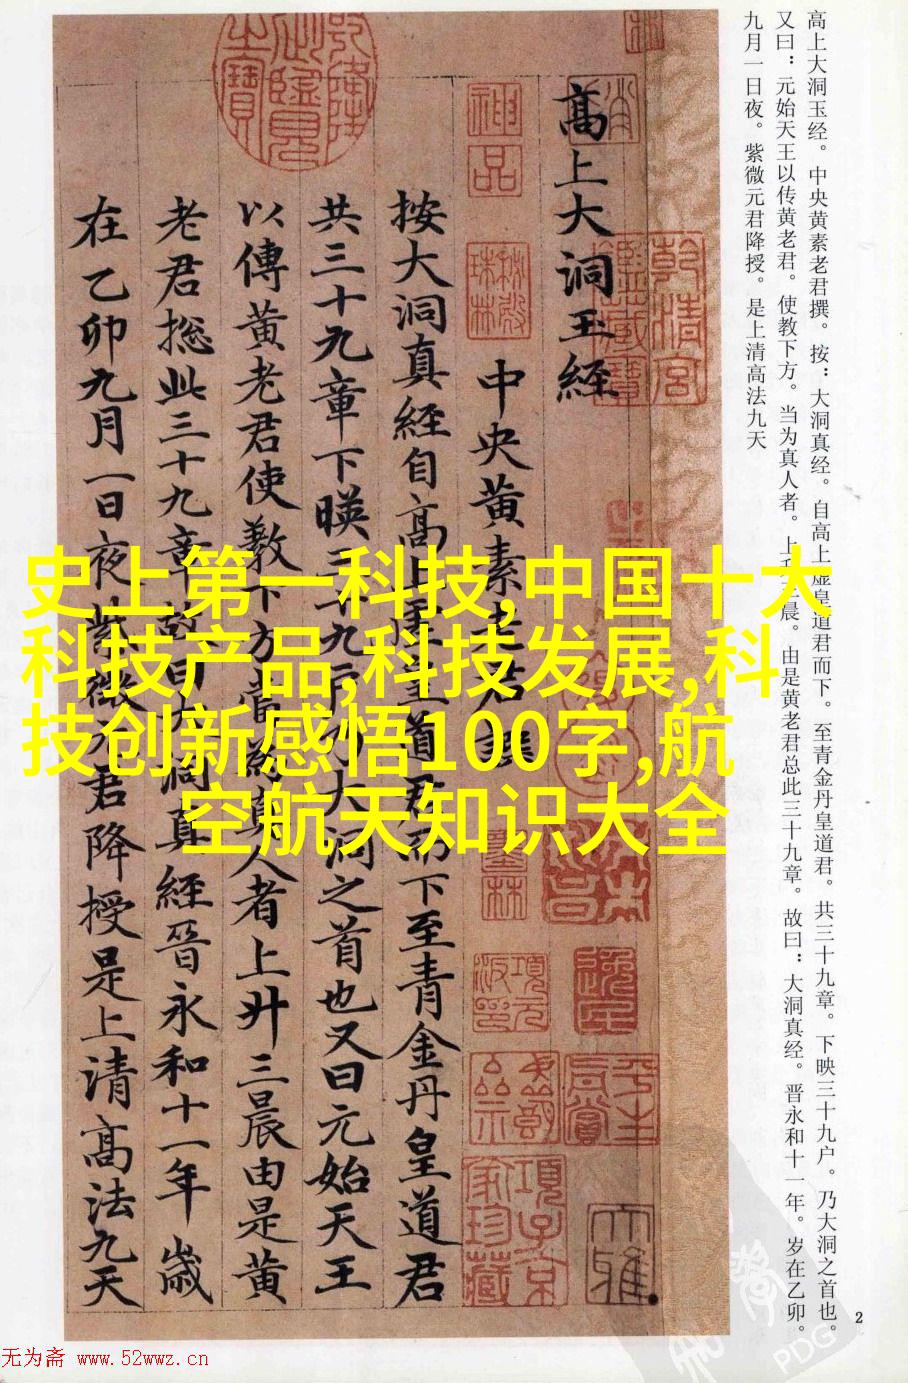 高上大洞玉经。中央黄素老君撰。按：大洞真经。自高上虚皇道君而下。至青金丹皇道君。共三十九章。下映三十九户。乃大洞之首也。
又曰：元始天王以传黄老君。使教下方。当为真人者。上
晨。由是黄老君总此三十九章。故曰：大洞真经。晋永和十一年。岁在乙卯。
九月一日夜。紫微元君降授。是上清高法九天
高上大洞玉經
神品
中央黄素老君
按大洞真經自高上
皇道君而下至青金丹皇道君
共三十九章下暎三
九户
大洞之首也又曰元始天王
以傳黄老君使教下方當
真人者上升三晨由是黄
老君捴此三十九章故曰大洞真經晉永和十一年歲
在乙卯九月一日夜紫微元君降授是上清高法九天
乾清宫鑑藏寶
史上第一科技,中国十大
科技产品,科技发展,科
技创新感悟100字,航
空航天知识大全
2
PDG
无为斋 www.52wwz.cn